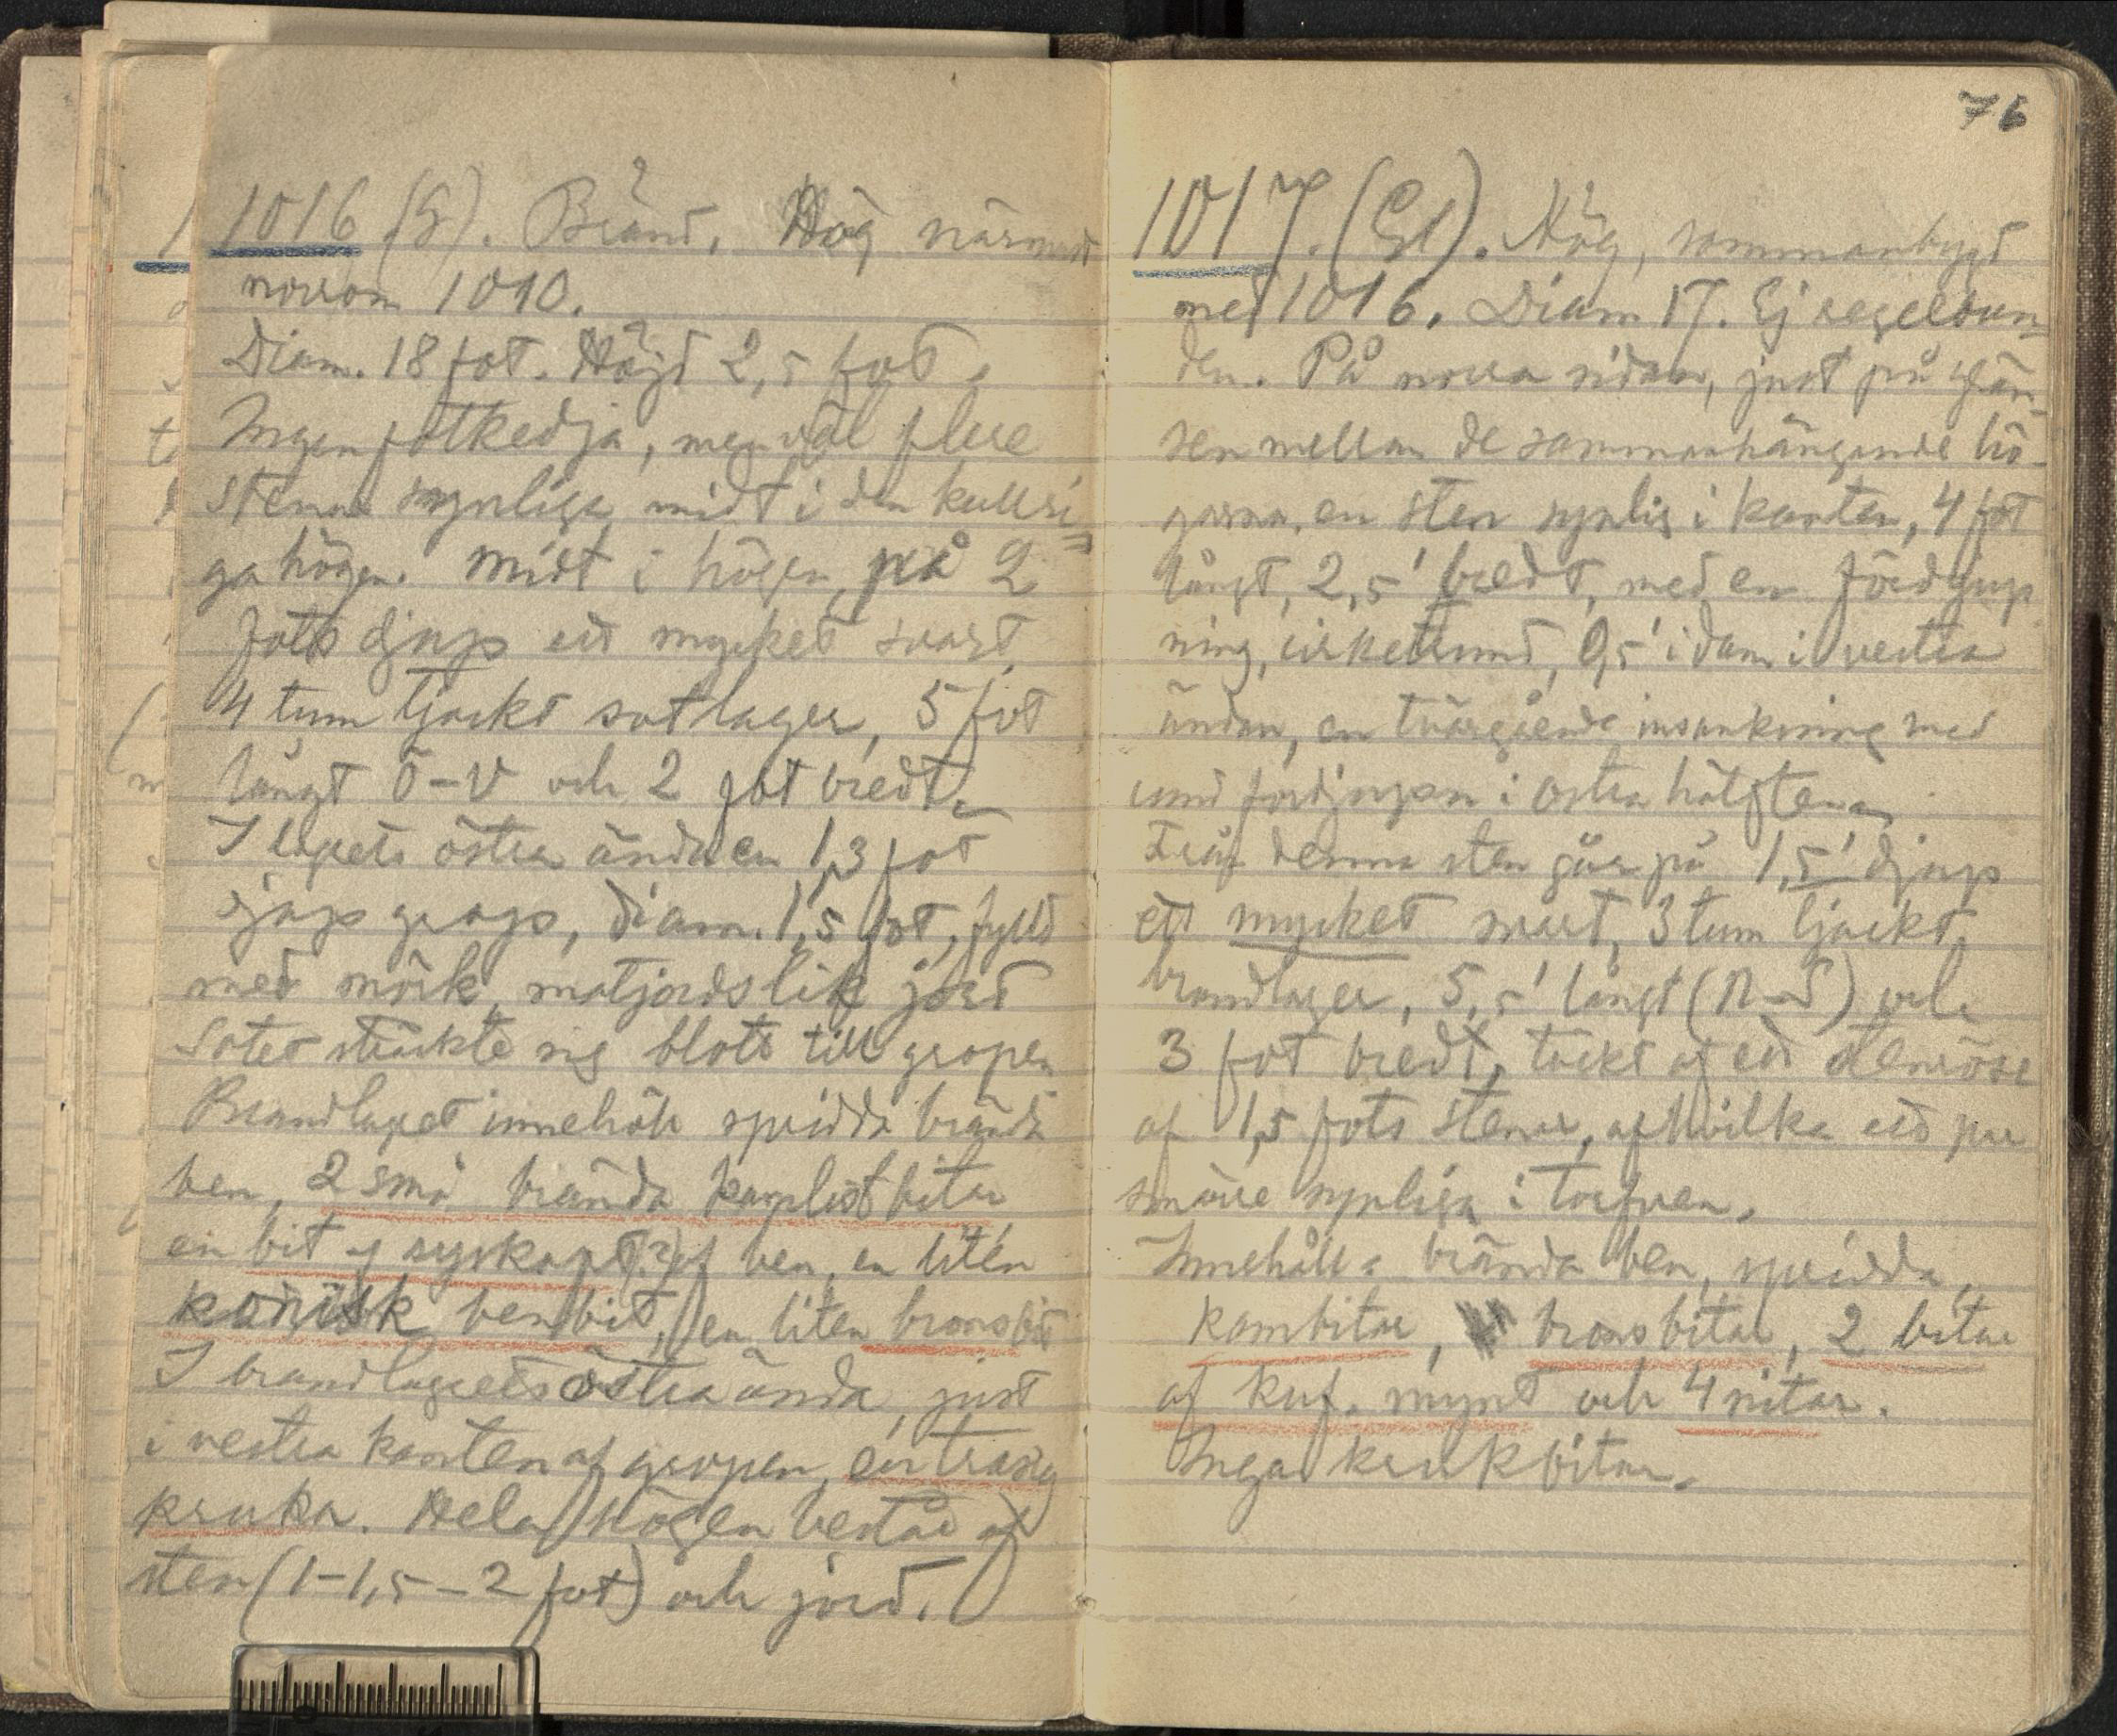 1016 (G). Bränd. Hög närmast
norrom 1010.
Diam. 18 fot. Höjd 2,5 fot.
Ingen fotkedja, men väl flere
stenar synliga midt i den kullri=
ga högen. Midt i högen, på 2
fots djup ett mycket svart,
4 tum tjockt sotlager, 5 fot
långt Ö-V och 2 fot bredt.
I lagrets östra ända en 1,3 fot
djup grop, diam. 1,5 fot, fylld
med mörk, matjordslik jord
Sotet sträckte sig blott till gropen
Brandlagret innehöll spridda brända
ben, 2 små brända kamlistbitar
en bit af (?) af ben, en liten
konisk benbit, en liten bronsbit
I brandlagrets östra ända, just
i vestra kanten af gropen, en trasig
kruka. Hela högen består af
sten (1-1,5-2 fot) och jord.
76
1017. (Gl). Hög, sammanbygd
med 1016. Diam 17. Ej regelbun=
den. På norra sidan, just på grän-
sen mellan de sammanhängande hö-
garna, en sten synlig i kanten, 4 fot
långt, 2,5' bredt, med en fördjup
ning, cirkelrund, 0,5' i diam i vestra
ändan, en tvärgående insänkning med
rund fördjupn i östra hälften.
Från denna sten går på 1,5' djup
ett mycket svart, 3 tum tjockt,
brandlager, 5,5' långt (N-S) och
3 fot bredt, täckt af ett stenröse
af 1,5 fots stenar, af hvilka ett par
större synliga i torfven.
Innehåll: brända ben, spridda,
kambitar, bronsbitar, 2 bitar
af kuf. mynt och 4 nitar.
Inga krukbitar.